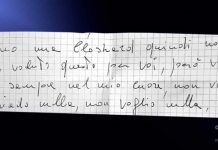 no una Clochard quindi no
voluto questo per voi, però v
sempre nel mio cuore, non v
iedo nulla, non voglio nulla,